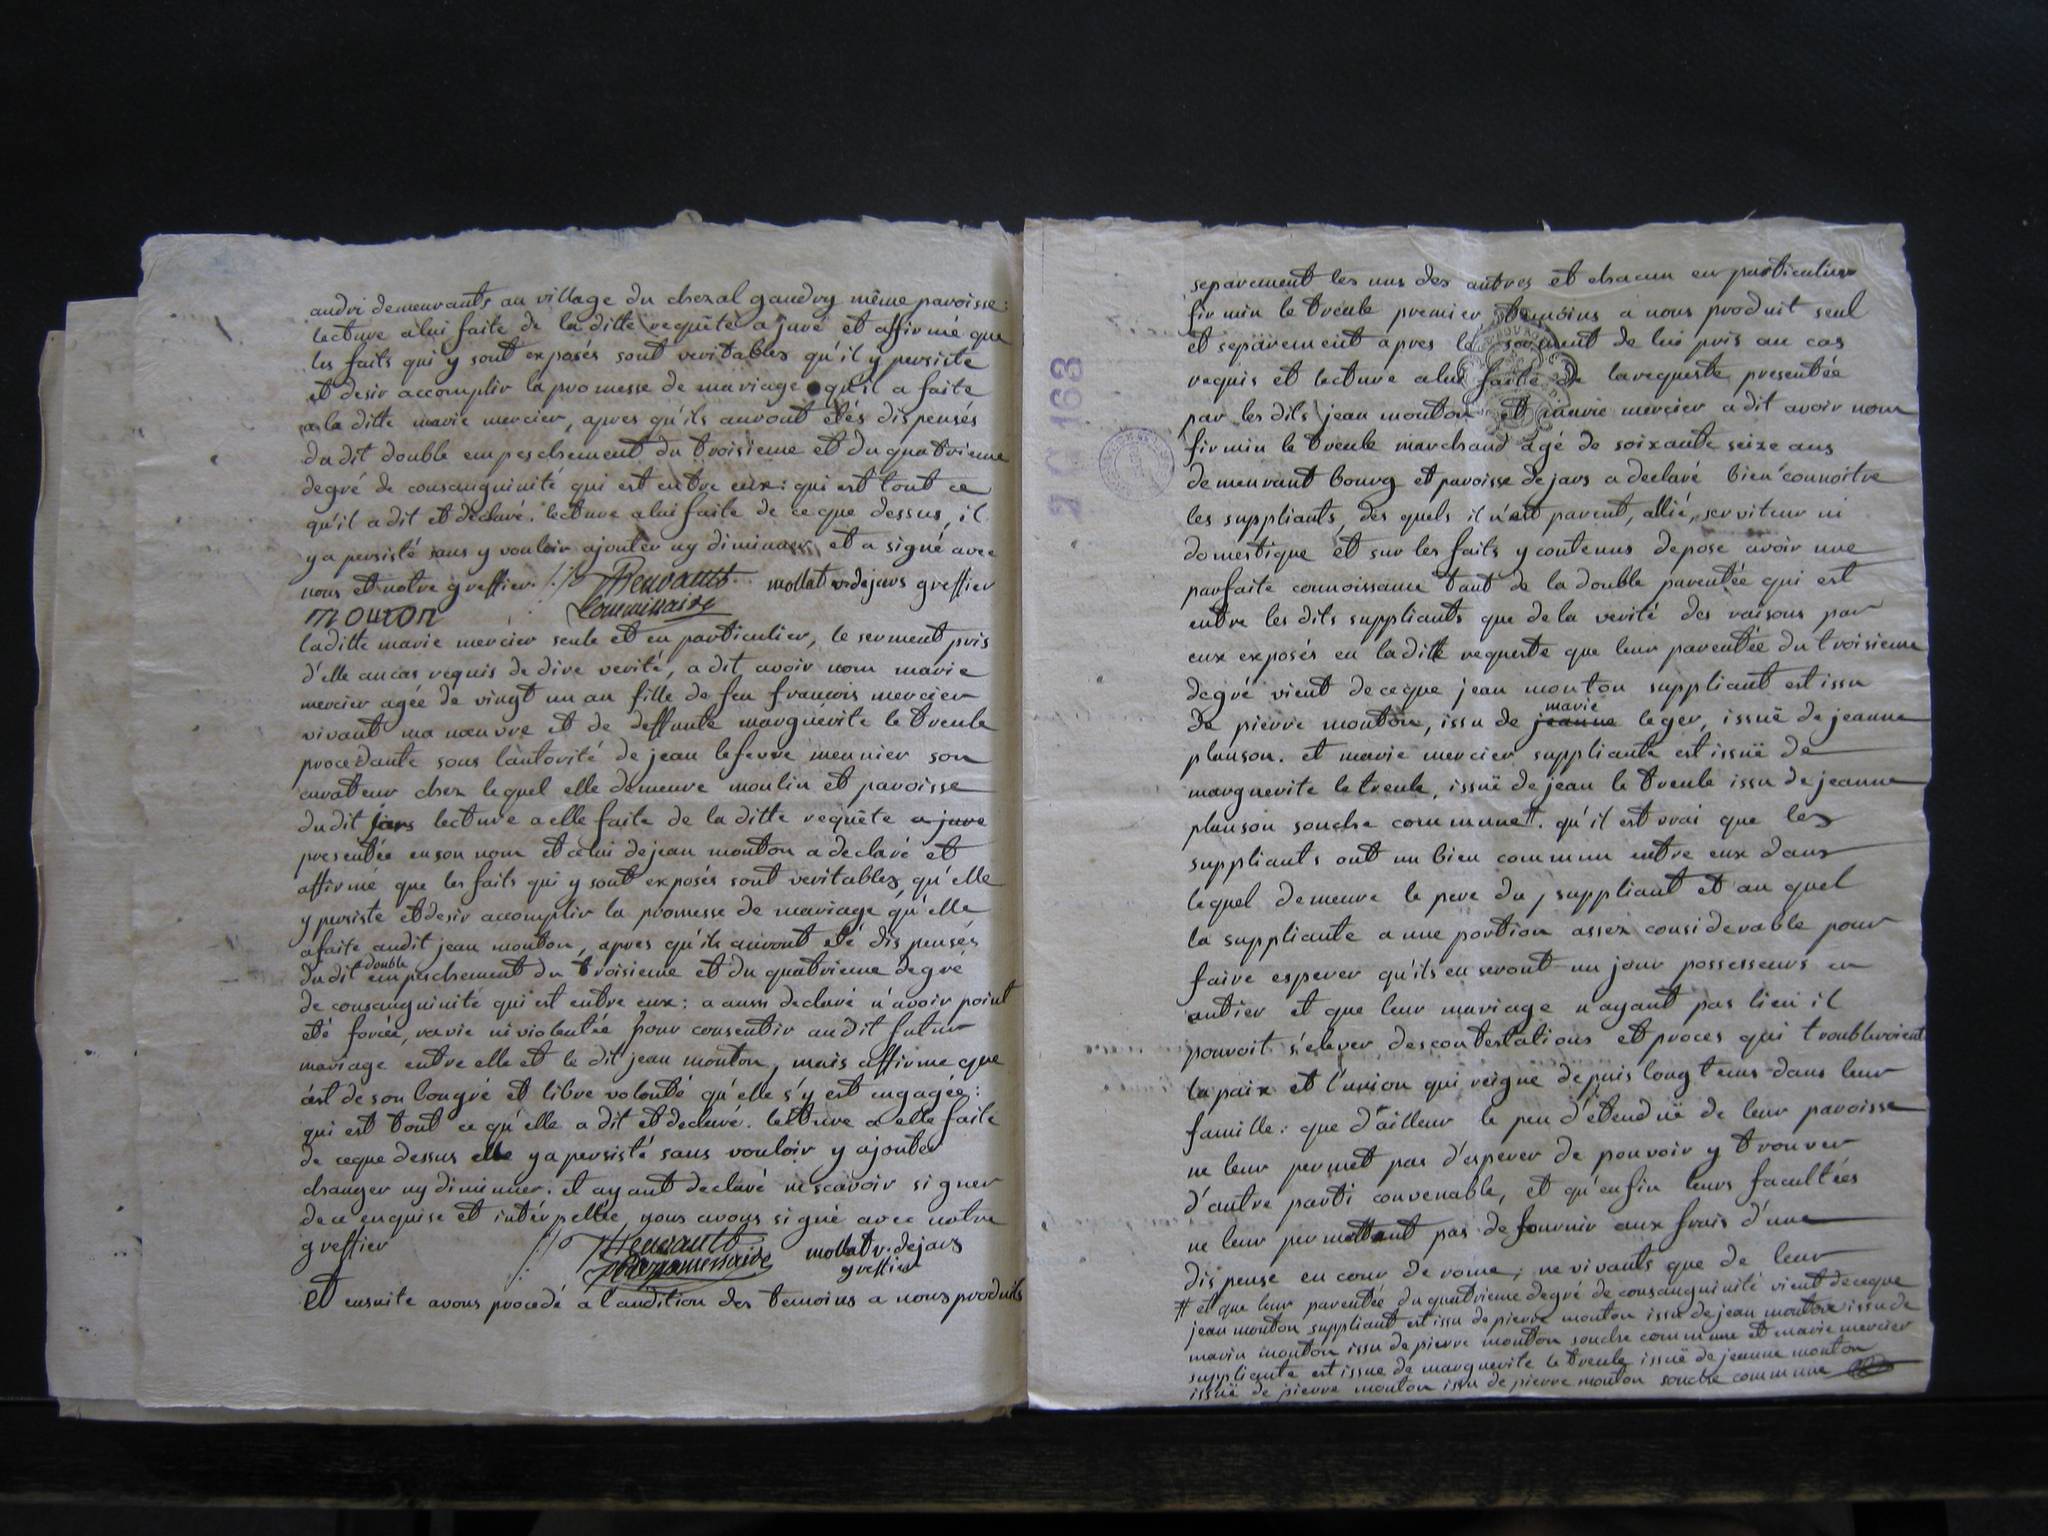 andri demeurants au village du chezal gaudry même paroisse:
lecture a lui faite de la ditte requête a juré et affirmé que
les faits qui y sont exposés sont veritables qu'il y persiste
et desir accomplir la promesse de mariage qu'il a faite
a la ditte marie mercier, apres qu'ils auront étés dispensés
du dit double empeschement du troisieme et du quatrieme
degré de consanguinité qui est entre eux: qui est tout ce
qu'il a dit et déclaré. lecture a lui faite de ce que dessus, il
y a persisté sans y vouloir ajouter ny diminuer et a signé avec
nous et notre greffier. mollat v. dejars greffier
mouton Commissaire
la ditte marie mercier seule et en particulier, le serment pris
d'elle au cas requis de dire verité, a dit avoir nom marie
mercier agée de vingt un an fille de feu francois mercier
vivant manœuvre et de deffunte marguerite le treule
procedante sous l'autorité de jean lefevre meunier son
curateur chez lequel elle demeure moulin et paroisse
du dit jars lecture a elle faite de la ditte requête a juré
presentée en son nom et celui de jean mouton a declaré et
affirmé que les faits qui y sont exposés sont veritables, qu'elle
y persiste et desir accomplir la promesse de mariage qu'elle
a faite audit jean mouton, apres qu'ils auront eté dispensés
du dit double empeschement du troisieme et du quatrieme degré
de consanguinité qui est entre eux: a aussi declaré n'avoir point
eté forcée, ravie ni violentée pour consentir audit futur
mariage entre elle et le dit jean mouton, mais affirme que
c'est de son bongré et libre volonté qu'elle s'y est engagée:
qui est tout ce qu'elle a dit et declaré. lecture a elle faite
de ce que dessus elle y a persisté sans vouloir y ajouter
changer ny diminuer. et ayant declaré ne scavoir signer
de ce enquise et interpellée, nous avons signé avec notre
greffier mollat v. dejars
greffier
Et ensuite avons procedé a l'audition des temoins a nous produits
separement les uns des autres et chacun en particulier
firmin le treule premier temoins a nous produit seul
et separement apres le serment de lui pris au cas
requis et lecture a lui faite de la requeste presentée
par les dits jean mouton et marie mercier a dit avoir nom
firmin le treule marchand agé de soixante seize ans
demeurant bourg et paroisse de jars a declaré bien connoitre
les suppliants, des quels il n'est parent, allié, serviteur ni
domestique et sur les faits y contenus depose avoir une
parfaite connoissance tant de la double parentée qui est
entre les dits suppliants que de la verité des raisons par
eux exposés en la ditte requeste que leur parentée du troisieme
degré vient de ce que jean mouton suppliant est issu
de pierre mouton, issu de jeanne marie leger, issuë de jeanne
planson. et marie mercier suppliante est issuë de
marguerite le treule, issuë de jean le treule issu de jeanne
planson souche commune #. qu'il est vrai que les
suppliants ont un bien commun entre eux dans
lequel demeure le pere du suppliant et au quel
la suppliante a une portion assez considerable pour
faire esperer qu'ils en seront un jour possesseurs en
entier et que leur mariage n'ayant pas lieu il
pouroit s'elever des contestations et proces qui troubleroient
la paix et l'union qui reigne depuis long tems dans leur
famille: que d'ailleur le peu d'étenduë de leur paroisse
ne leur permet pas d'esperer de pouvoir y trouver
d'autre parti convenable, et qu'enfin leurs facultées
ne leur permettent pas de fournir aux frais d'une
dispense en cour de rome, ne vivants que de leur
# et que leur parentée du quatrieme degré de consanguinité vient de ce que
jean mouton suppliant est issu de pierre mouton issu de jean mouton issu de
marin mouton issu de pierre mouton souche commune et marie mercier
suppliante est issue de marguerite le treule issuë de jeanne mouton
issuë de pierre mouton issu de pierre mouton souche commune
2 G 168